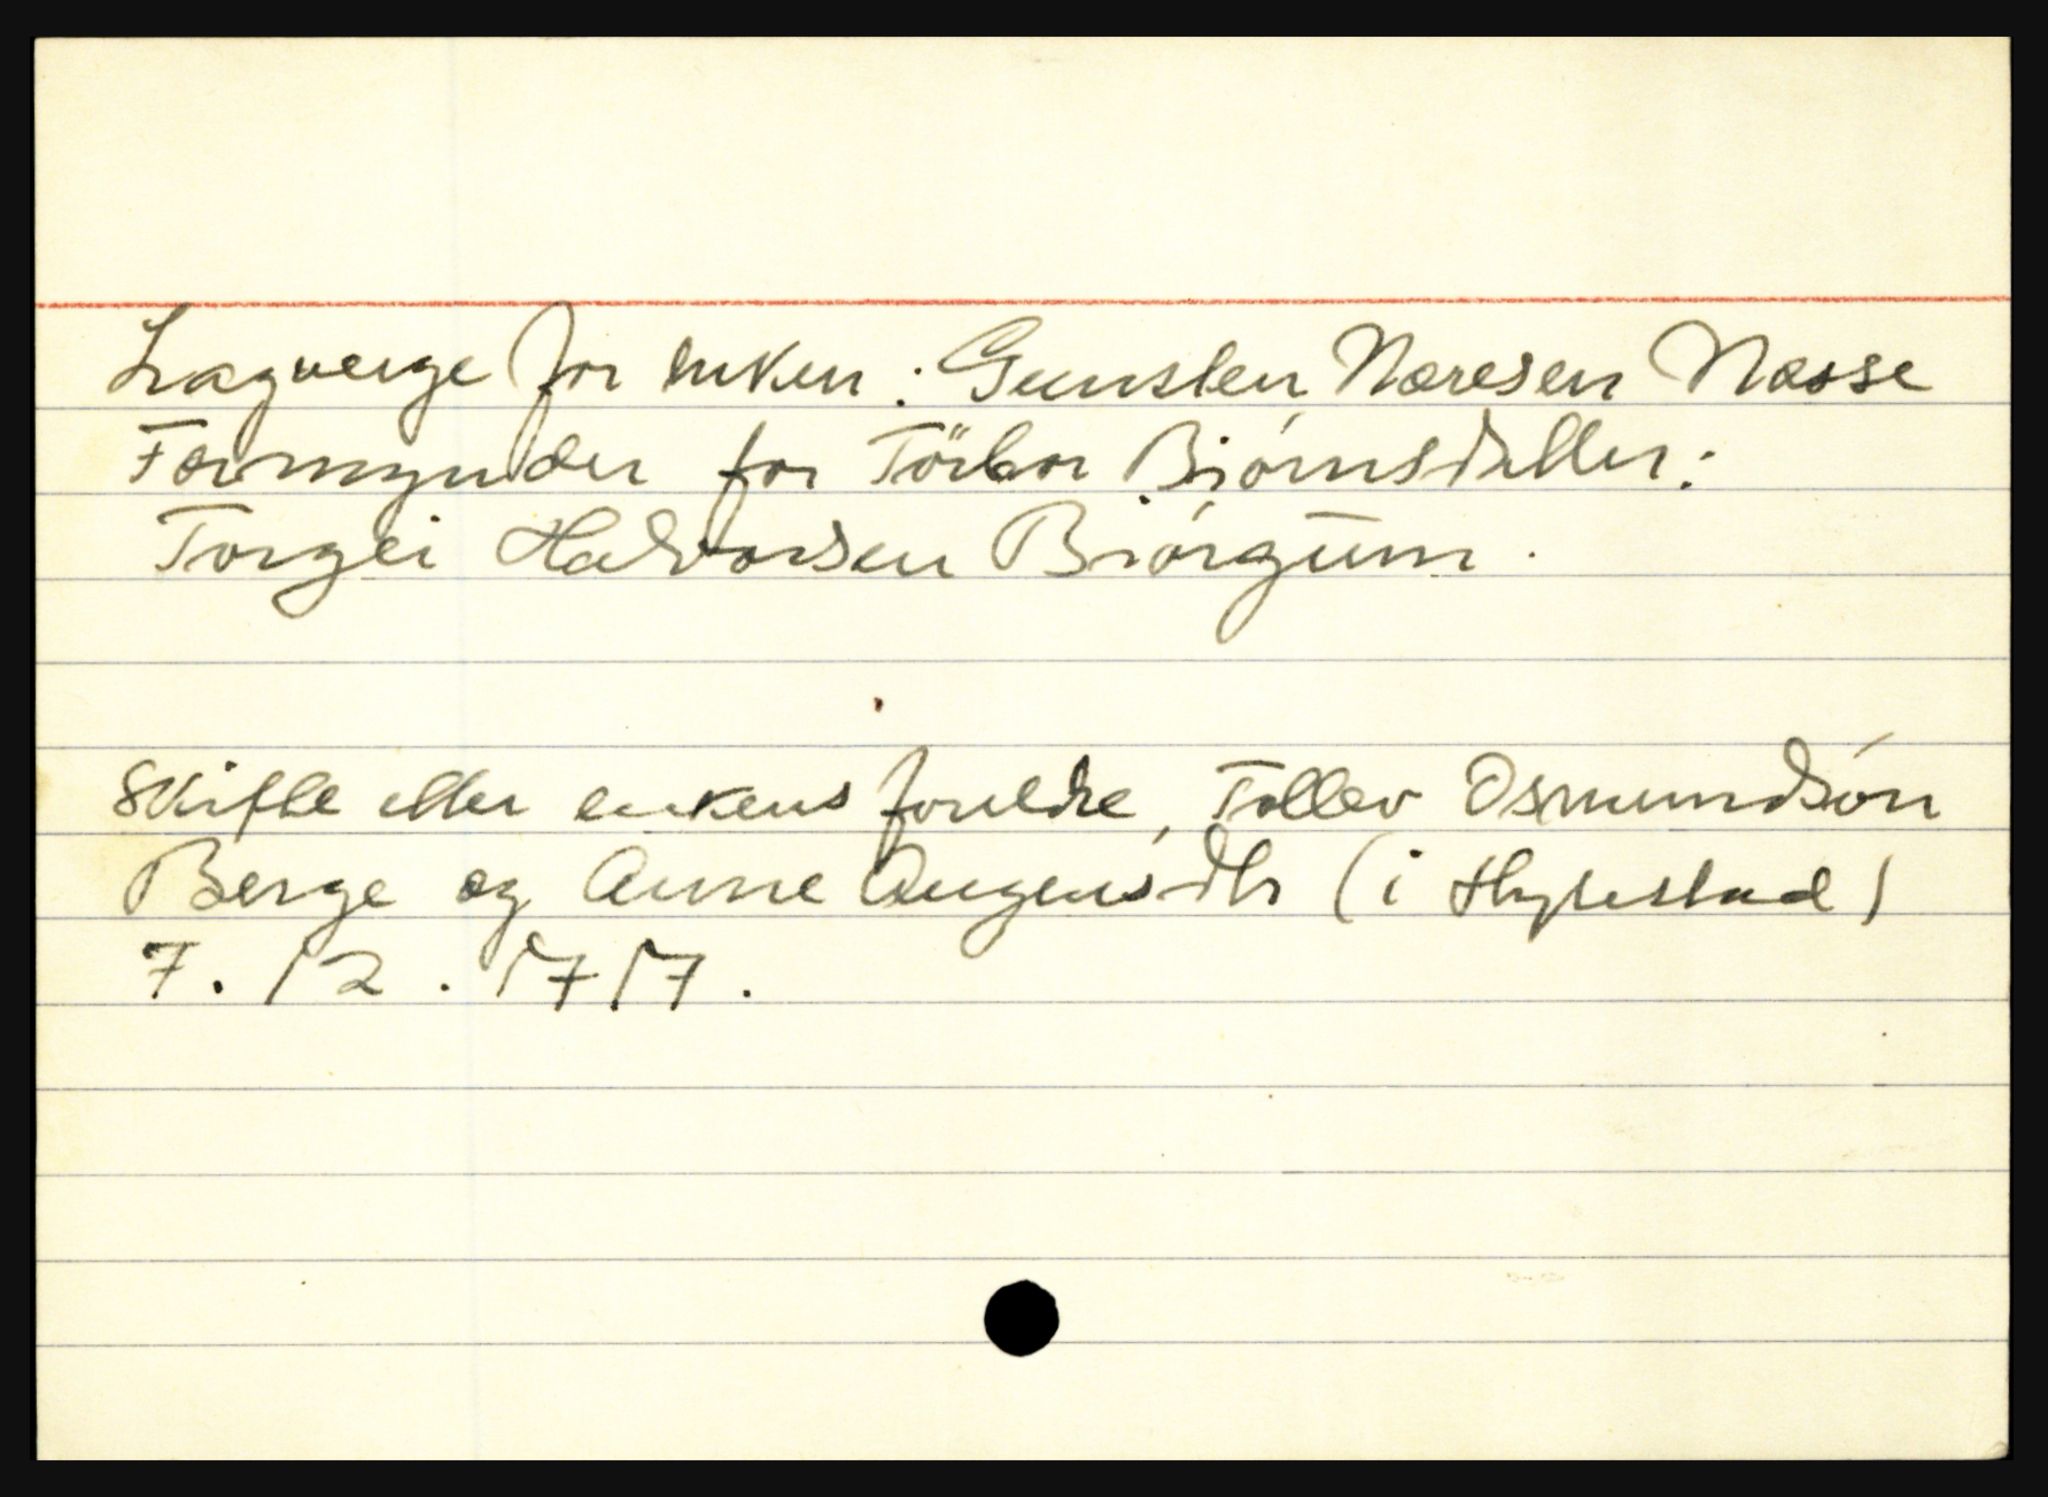 Lagverge for enken: Gunsten Næresen Næsse
Formynder for Törbor Biórnsdatter:
Torgei Halvorsen Biórgum.
Skifte etter enkens foreldre, Tollev Osmundsón
Berge og Anne Augensdtr (i Hylestad)
7.12.1717.